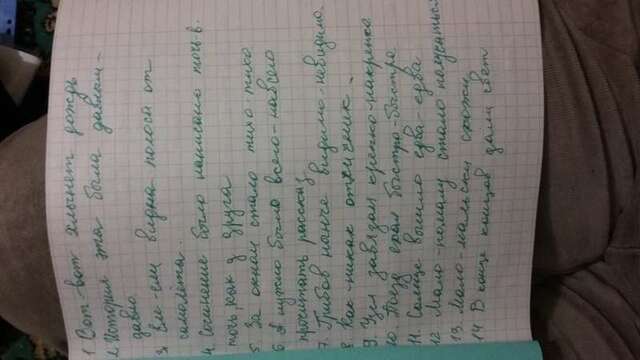 1 Вот-вот хлынет дождь
2. История эта была давным-
давно.
3. Еле-еле видна полоса от
самолёта.
4. Сочинение было написано точь-в-
точь, как у друга
5. За окном стало тихо-тихо
6. А нужно было всего-навсего
прочитать рассказ
7. Грибов нынче видимо-невидимо.
8. Как-никак отличник.
9. Узел завязан крепко-накрепко
10. Поезд ехал быстро-быстро
11. Солнце вышло едва-едва
12 Мало-помалу стало получаться
13. Мало-мальски схожи
14 В конце концов дали свет